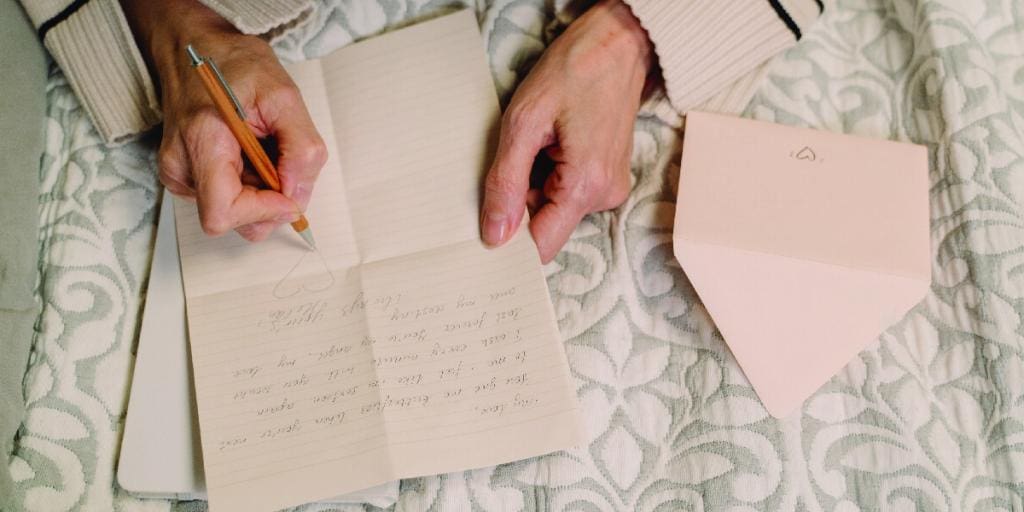 My love,
You give me butterflies when you're next
to me. I feel like i'm sixteen again
I wish every minute with you would
last forever. You're my angel, my love
and my destiny
Always yours,